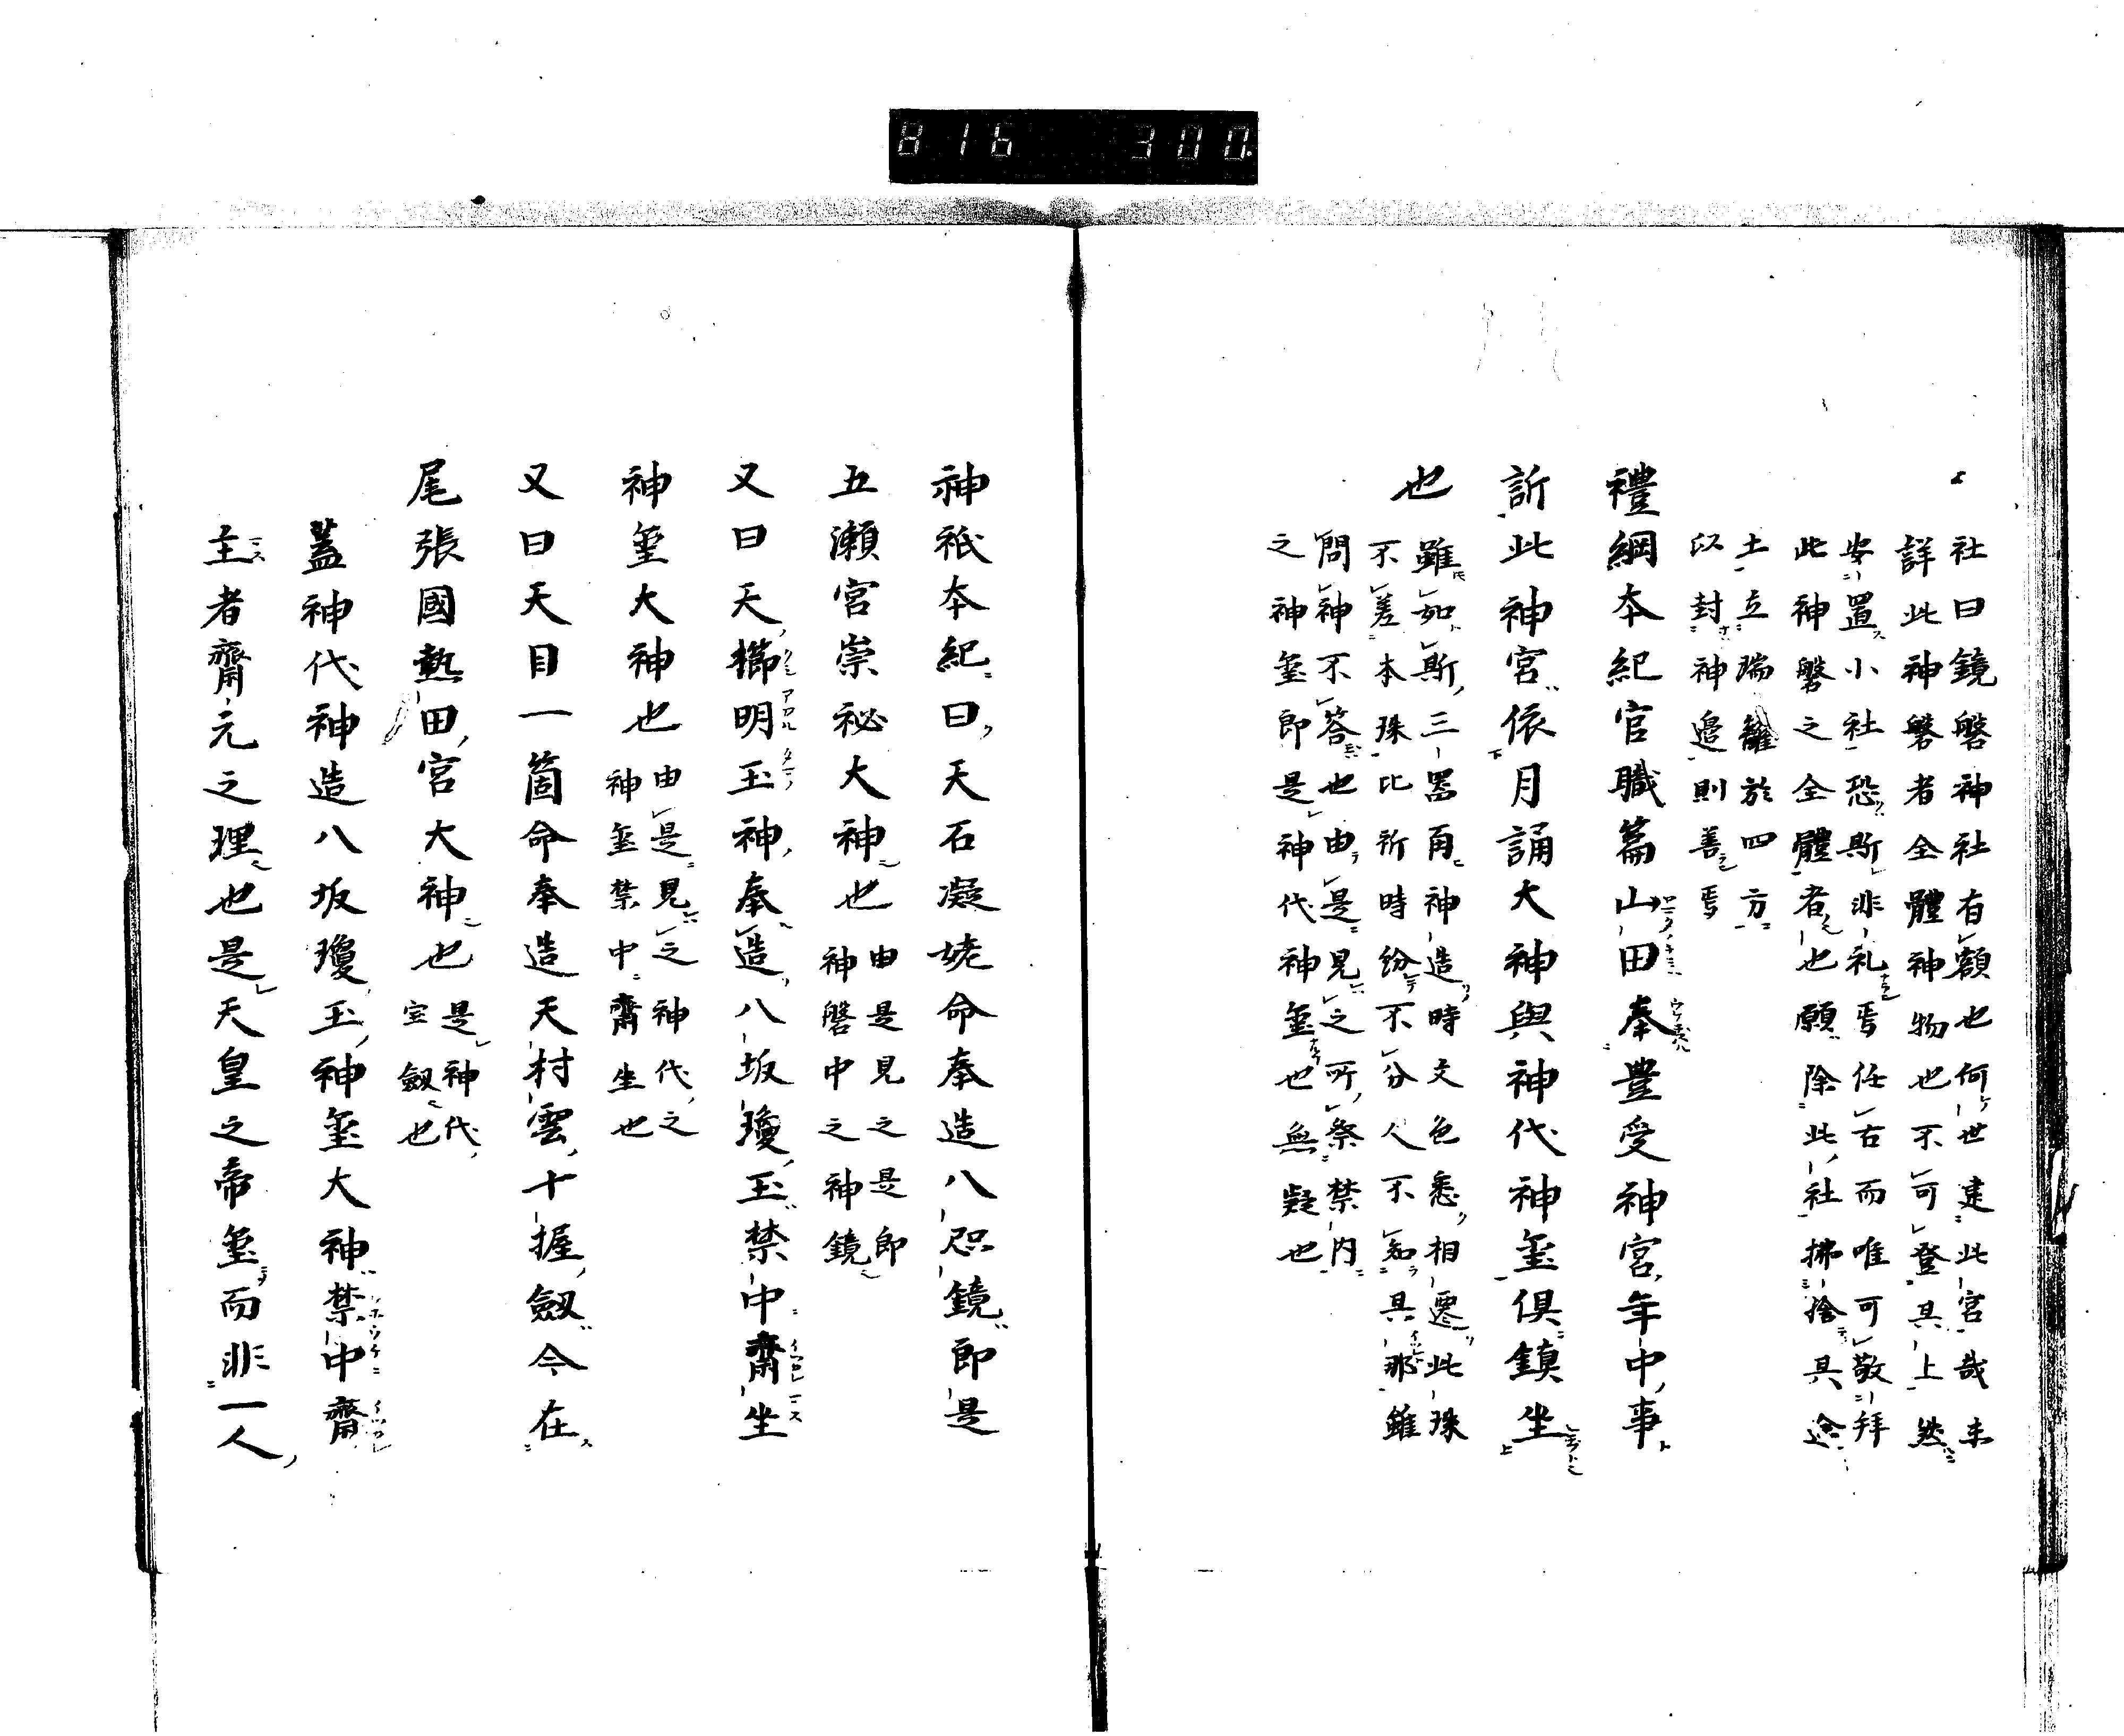 816 300.
社曰鏡磐神社有額也何世建此宮哉未
詳此神磐者全體神物也不可登其上然
安置小社恐斯非礼焉任右而唯可敬拜
此神磐之全體者也願除此社拂捨其途
土立瑞籬於四方
以封神邉則善焉
禮綱本紀官職篇山田奉豊受神宮年中事
訢此神宮依月誦大神與神代神璽倶鎮坐
也
雖如斯三畧甬神造時文色悉相遷此珠
不差本珠比祈時紛不分人不知具那雖
問神不答也由是見之所祭禁内
之神璽即是神代神璽也無疑也
神祇本紀曰天石凝姥命奉造八咫鏡即是
五瀬宮崇祕大神也
由是見之是即
神磐中之神鏡
又曰天櫛明玉神奉造八坂瓊玉禁中齋坐
神璽大神也
由是見之神代之
神璽禁中齋坐也
又曰天目一箇命奉造天村雲十握劔今在
尾張國熱田宮大神也
是神代
宝劔也
蓋神代神造八坂瓊玉神璽大神禁中齋
主者齋元之理也是天皇之帝璽而非一人